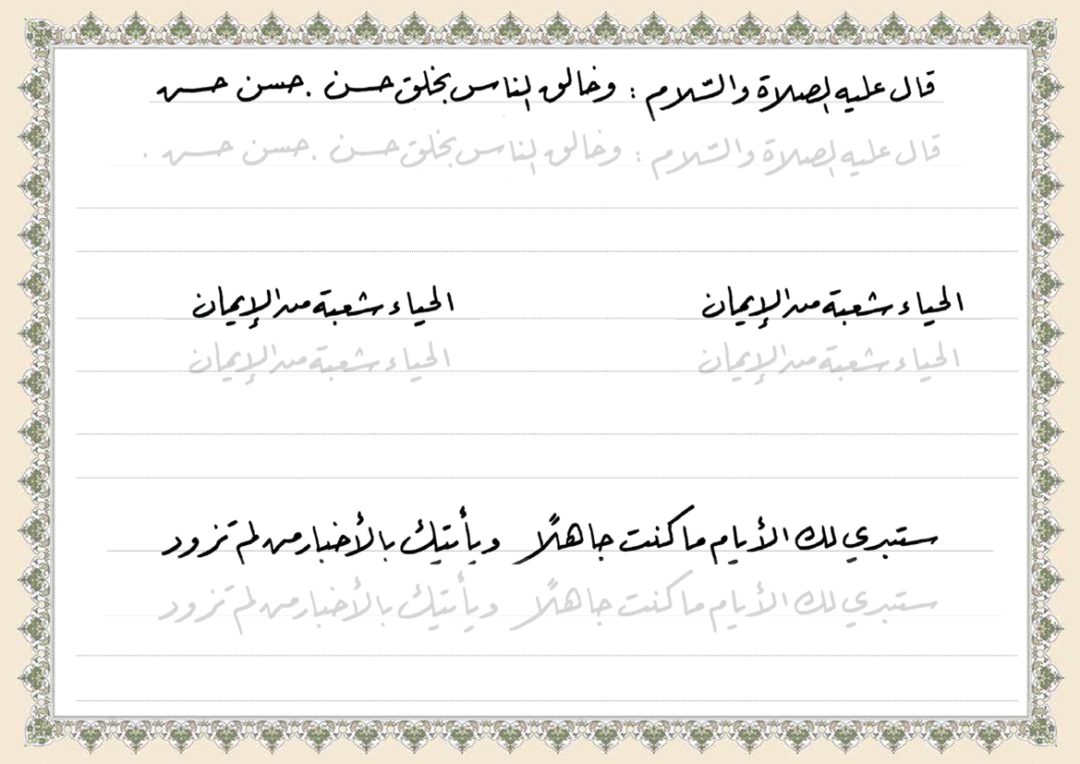 قال عليه الصلاة والسّلام : وخالق الناس بخلق حسن . حسن حسن
قال عليه الصلاة والسّلام : وخالق الناس بخلق حسن . حسن حسن .
الحياء شعبة من الإيمان الحياء شعبة من الإيمان
الحياء شعبة من الإيمان الحياء شعبة من الإيمان
ستبدي لك الأيام ما كنت جاهلًا ويأتيك بالأخبار من لم تزود
ستبدي لك الأيام ما كنت جاهلًا ويأتيك بالأخبار من لم تزود